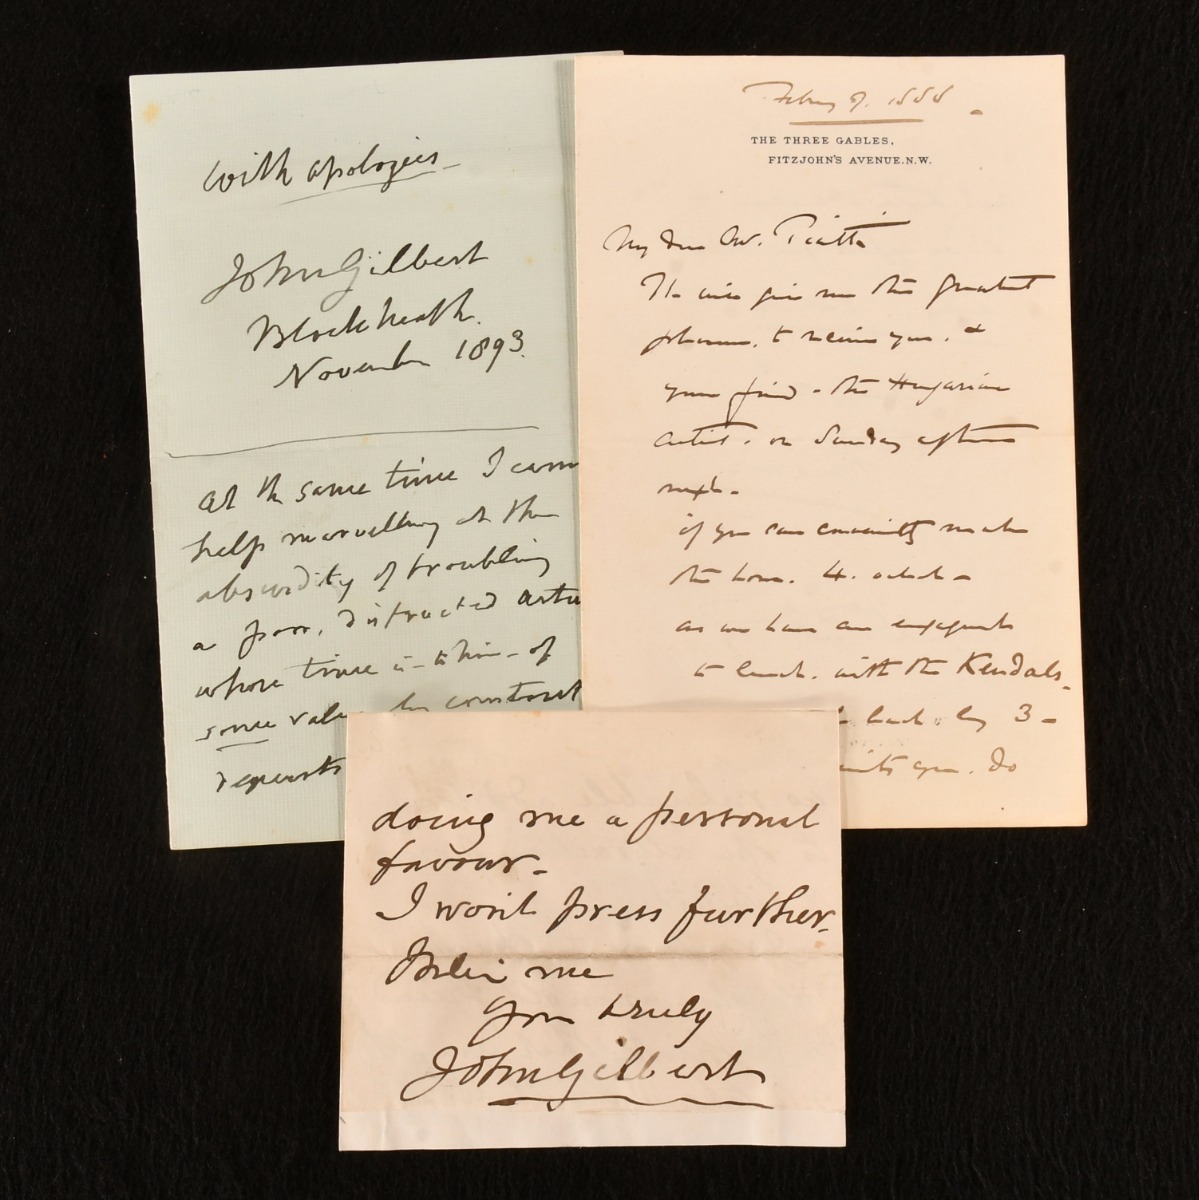 with apologies
John Gilbert
Blackheath.
November 1893.
at the same time I cann
help marvelling at the
absurdity of troubling
a poor, distracted artis
whose time is - to him - of
some value by constant
requests
Febry 9. 1888
THE THREE GABLES,
FITZJOHN'S AVENUE.N.W.
My dear Mr. Piatti
It will give me the greatest
pleasure, to receive you, &
your friend - the Hungarian
artist. on Sunday afternoon
next -
if you can conveniently make
the hour. 4. oclock -
as we have an engagement
to lunch. with the Kendals.
back by 3 -
you. do
doing me a personal
favour -
I won't press further.
Believe me
Your truly
John Gilbert